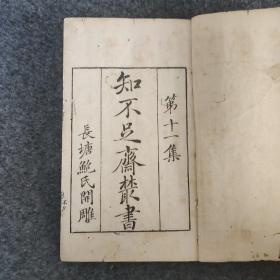 第十一集
知不足齋叢書
長塘鮑氏開雕